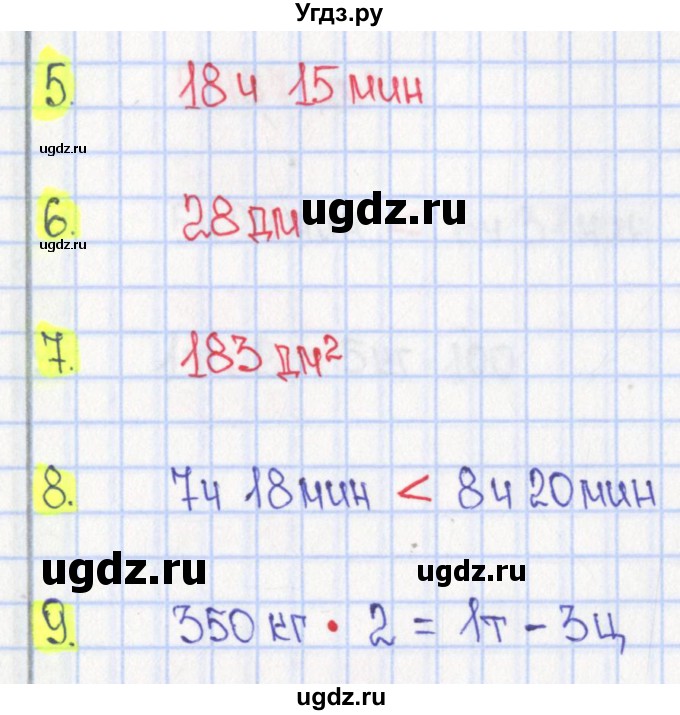 Угдз.ру
5. 18 ч 15 мин
ugdz.ru
6. 28 дм ugdz.ru
ugdz.ru
7. 183 дм²
8. 7ч 18 мин < 8ч 20 мин
ugdz.ru ugdz.ru
9. 350 кг • 2 = 1т - 3ц
ugdz.ru